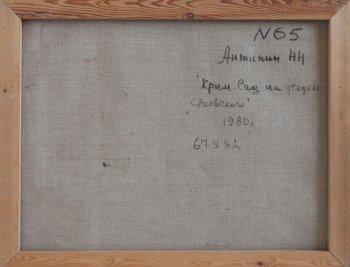 N65
Антипин НН
"Крим. Сад на усадьбе
Раевского"
1980г
67 x 82